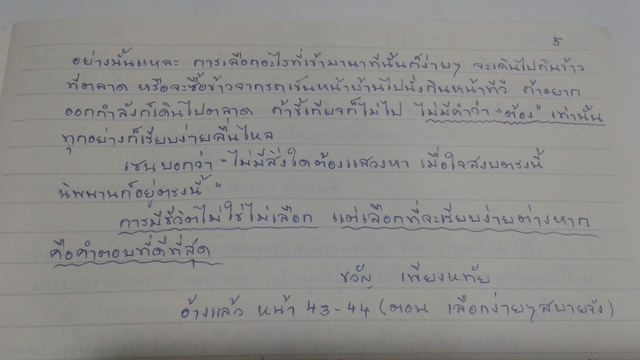 5
อย่างนั้นแหละ การเลือกอะไรที่เข้ามานาทีนั้นก็ง่ายๆ จะเดินไปกินข้าว
ที่ตลาด หรือจะซื้อข้าวจากรถเข็นหน้าบ้านไปนั่งกินหน้าทีวี ถ้าอยาก
ออกกำลังก็เดินไปตลาด ถ้าขี้เกียจก็ไม่ไป ไม่มีคำว่า "ต้อง" เท่านั้น
ทุกอย่างก็เรียบง่ายลื่นไหล
เซนบอกว่า "ไม่มีสิ่งใดต้องแสวงหา เมื่อใจสงบตรงนี้
นิพพานก็อยู่ตรงนี้"
การมีชีวิตไม่ใช่ไม่เลือก แต่เลือกที่จะเรียบง่ายต่างหาก
คือคำตอบที่ดีที่สุด
ขวัญ เพียงหทัย
อ้างแล้ว หน้า 43-44 (ตอน เลือกง่ายๆสบายจัง)